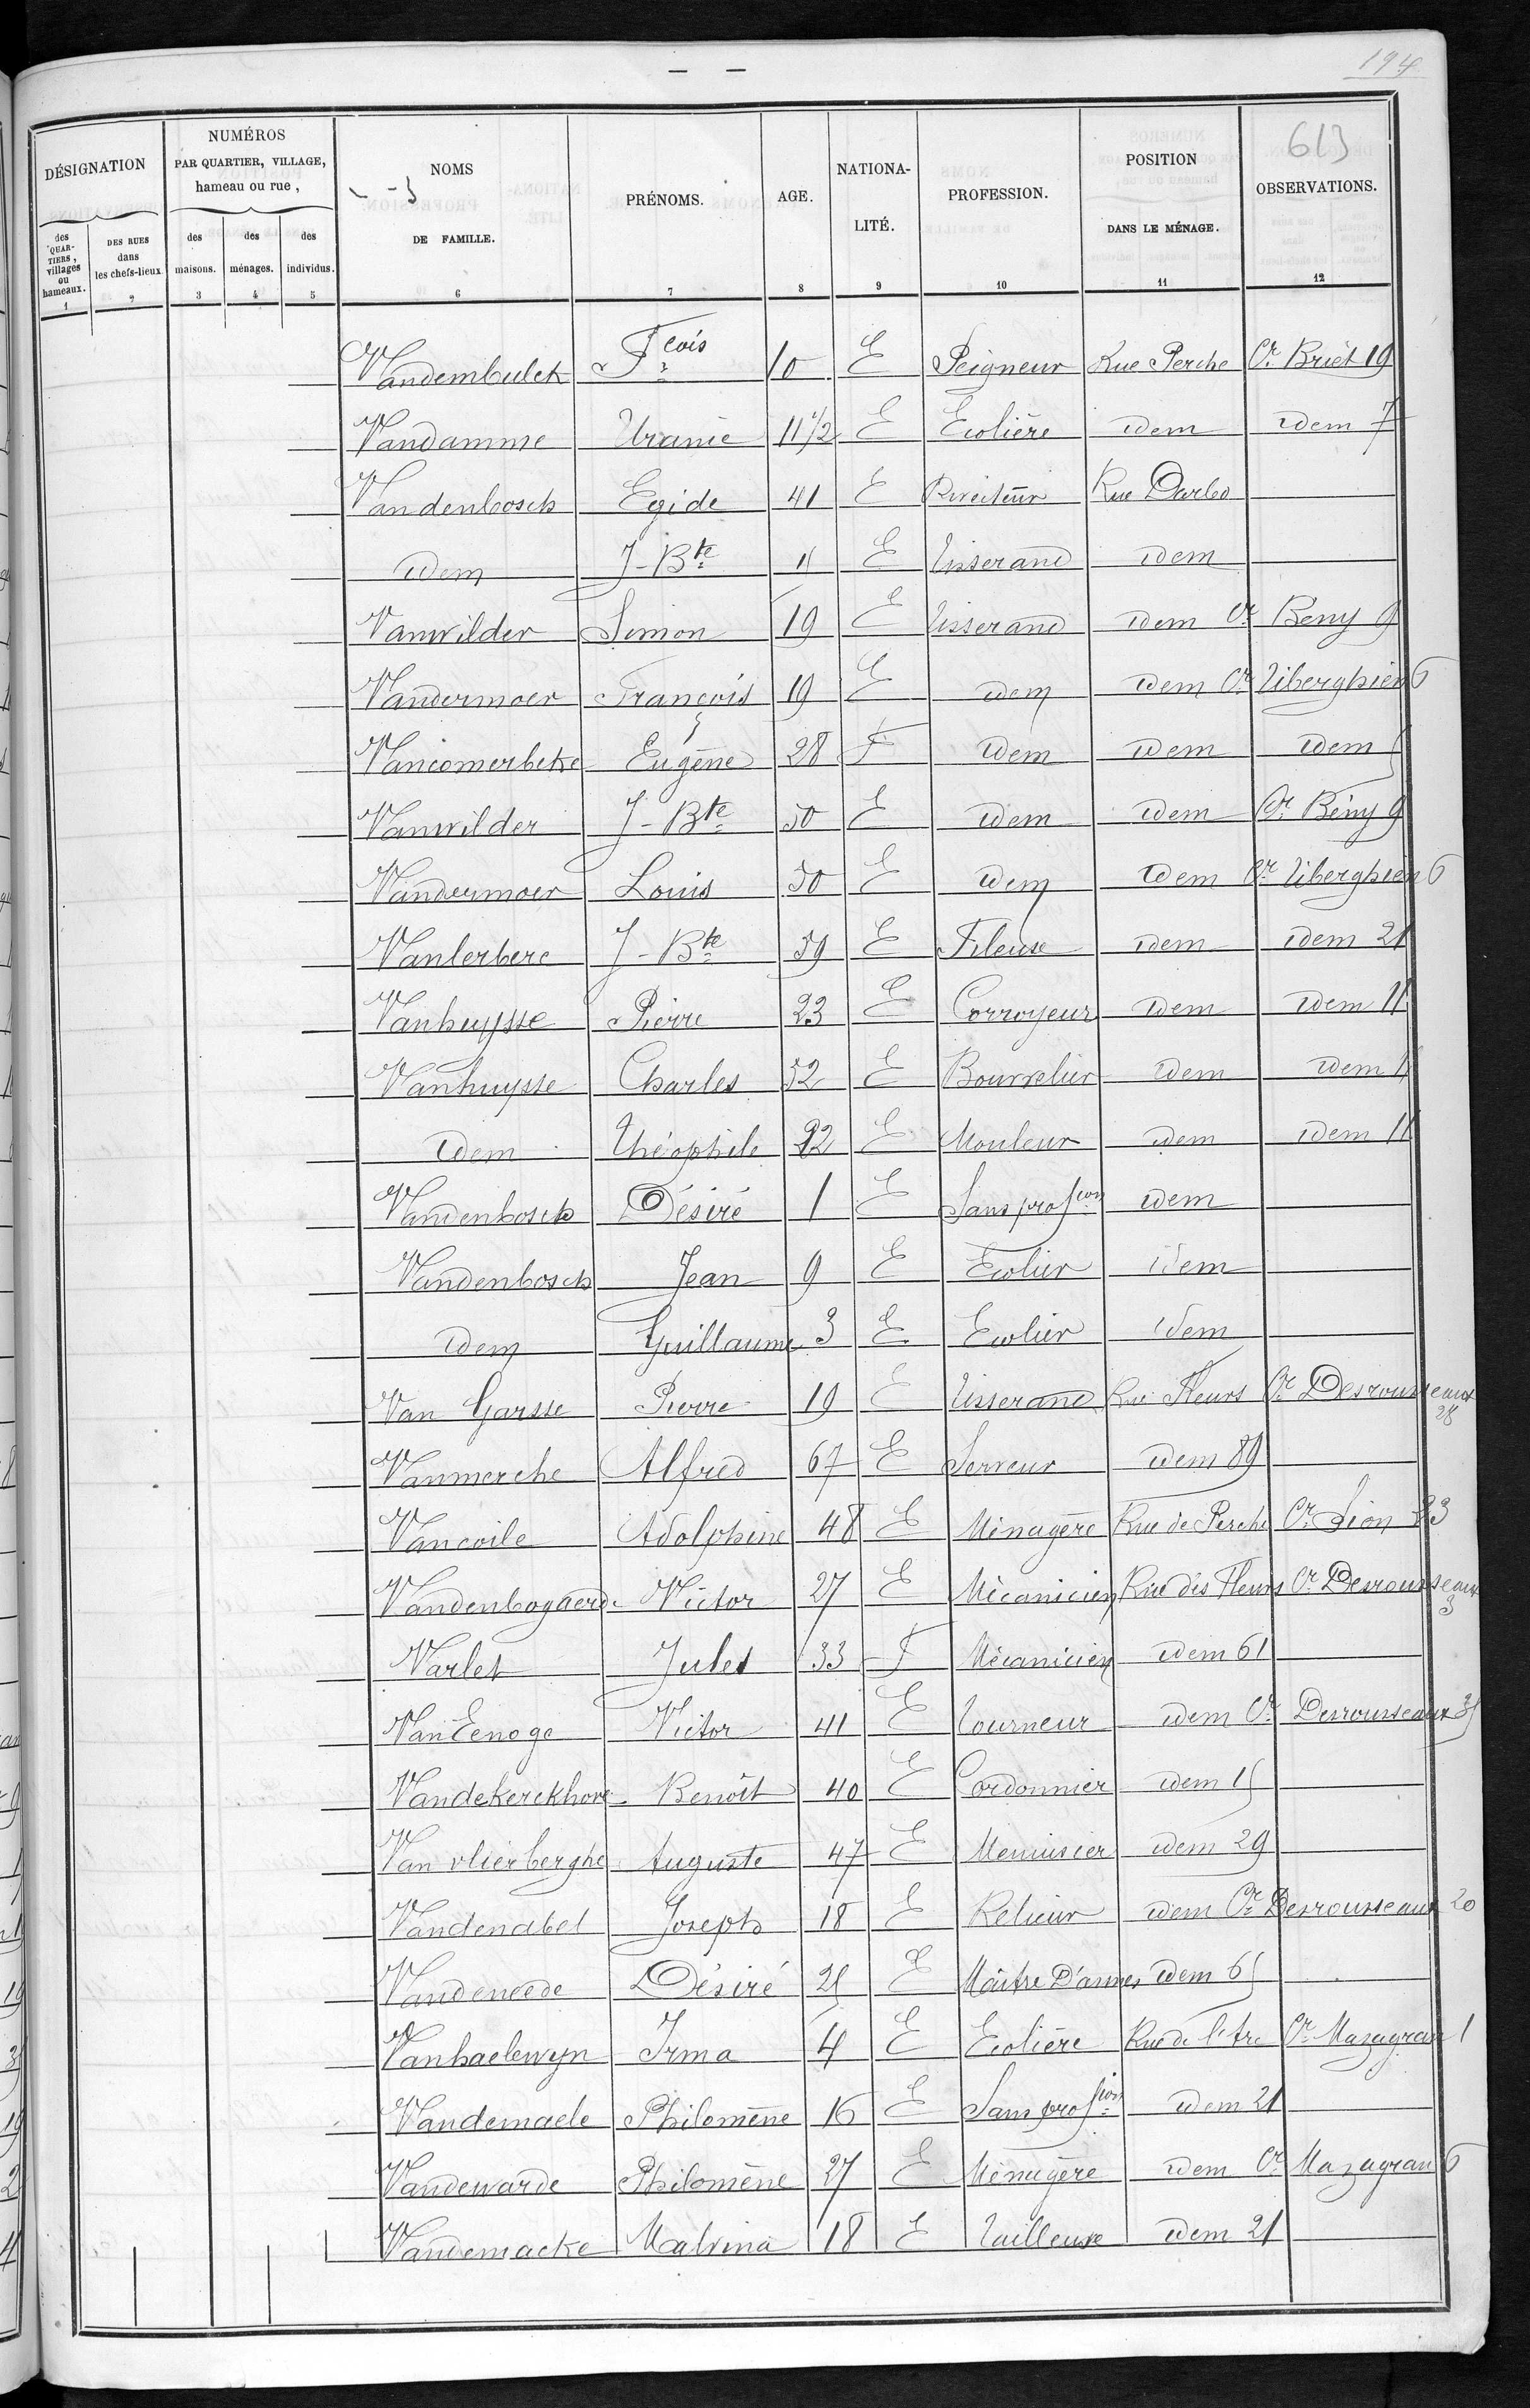 194
613
DÉSIGNATION
NUMÉROS
PAR QUARTIER, VILLAGE,
hameau ou rue,
des QUARTIERS, villages ou hameaux.
DES RUES dans les chefs-lieux
des maisons.
des ménages.
des individus.
NOMS
DE FAMILLE.
PRÉNOMS.
AGE.
NATIONA-
LITÉ.
PROFESSION.
POSITION
DANS LE MÉNAGE.
OBSERVATIONS.
1 2 3 4 5 6 7 8 9 10 11 12
Vandembulck Fcois 10 E Peigneur Rue Perche Cr Briét 19
Vandamme Uranie 11 1/2 E Ecolière idem idem 7
Vandenbosch Egide 41 E Rue Darbo
idem J-Bte 11 E Tisserand idem
Vanwilder Simon 19 E Tisserand idem Cr Bény 9
Vandermoer François 19 E idem idem Cr Tiberghien 6
Vancomerbeke Eugène 28 F idem idem idem 5
Vanwilder J-Bte 50 E idem idem Cr Bény 9
Vandermoer Louis 50 E idem idem Cr Tiberghien 6
Vanlerbere J-Bte 59 E Fileuse idem idem 21
Vanhuysse Pierre 23 E Corroyeur idem idem 11
Vanhuysse Charles 52 E Bourrelier idem idem 11
idem Théophile 22 E Mouleur idem idem 11
Vandenbosch Désiré 1 E Sans profion idem
Vandenbosch Jean 9 E Ecolier idem
idem Guillaume 3 E Ecolier idem
Van Garsse Pierre 19 E Tisserand Rue Fleurs Cr Desrousseaux 28
Vanmerche Alfred 67 E Serreur idem 89
Vancoile Adolphine 48 E Ménagère Rue de Perche Cr Lion 23
Vandenbogaerd Victor 27 E Mécanicien Rue des Fleurs Cr Desrousseaux 3
Varlet Jules 33 F Mécanicien idem 61
Van Eenoge Victor 41 E Tourneur idem Cr Desrousseaux 35
Vandekerckhove Benoit 40 E Cordonnier idem 15
Van vlierberghe Auguste 47 E Menuisier idem 29
Vandenabel Joseph 18 E Relieur idem Cr Desrousseaux 20
Vandeneede Désiré 25 E Maître D'armes idem 65
Vanhaelewyn Irma 4 E Ecolière Rue de l'Are Cr Mazagran 1
Vandemaele Philomène 16 E Sans profion idem 21
Vandewarde Philomène 27 E Ménagère idem Cr Mazagran 6
Vandemacke Malvina 18 E Tailleuse idem 21